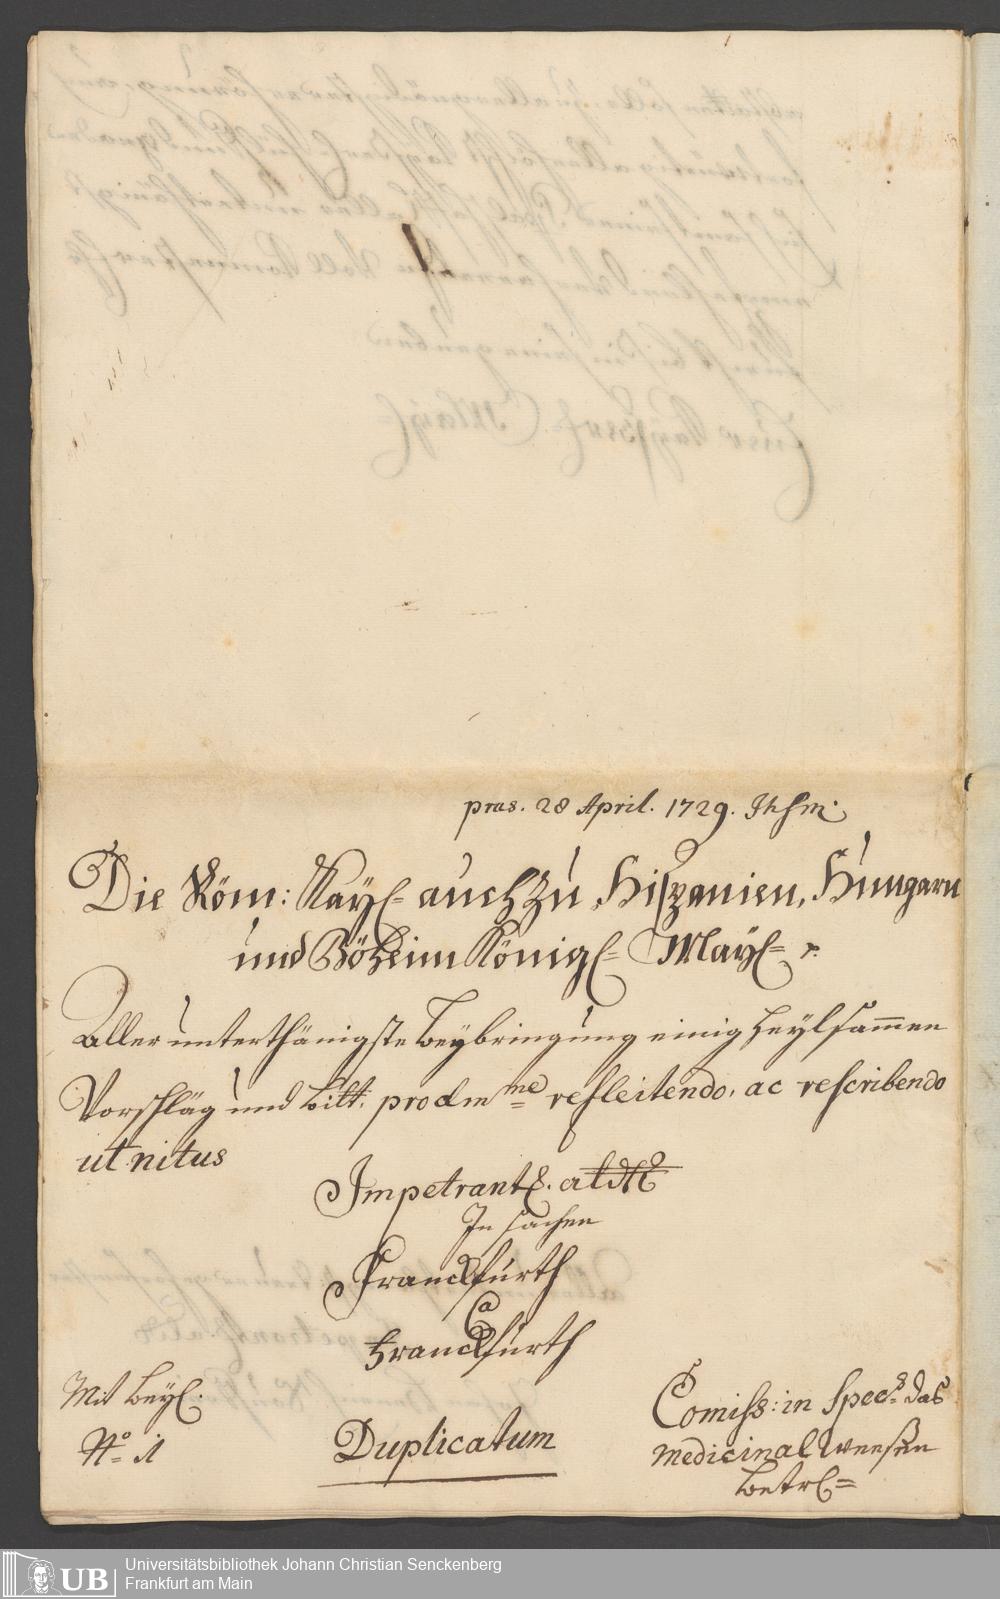 pras. 28 April. 1729.
Die Röm: Kayß= auch zu Hispanien, Hungarn
und Böheim Königl= Mayl= r.
Aller unterthänigste Beybringung einig heylsam̄en
Vorschläg und Bitt, pro dem̲̅ne̲ refleitendo, ac rescribendo
ut nitus
Impetrant
In sachen
Franckfürth
Ca
Franckfürth
Mit Beyl.
No. 1
Duplicatum
Comiss: in Spec. das
Medicinal Weesen
betrl=
Universitätsbibliothek Johann Christian Senckenberg
Frankfurt am Main
UB